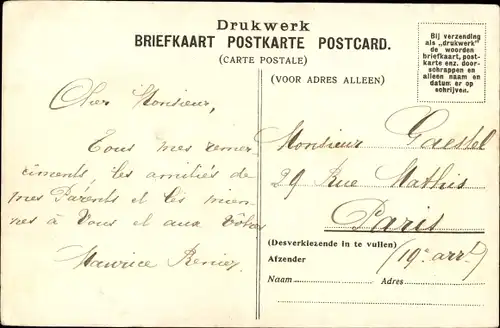 Drukwerk
BRIEFKAART POSTKARTE POSTCARD.
(CARTE POSTALE)
(VOOR ADRES ALLEEN)
Bij verzending
als „drukwerk”
de woorden
briefkaart, post-
karte enz. door-
schrappen en
alleen naam en
datum er op
schrijven.
Cher Monsieur,
Tous mes remer
ciments, les amitiés de
mes Parents et les mien-
nes à Vous et aux Vôtres
Maurice
Monsieur Gaestel
29 Rue Mathis
Paris
(Desverkiezende in te vullen)
Afzender
(19e arrt)
Naam
Adres